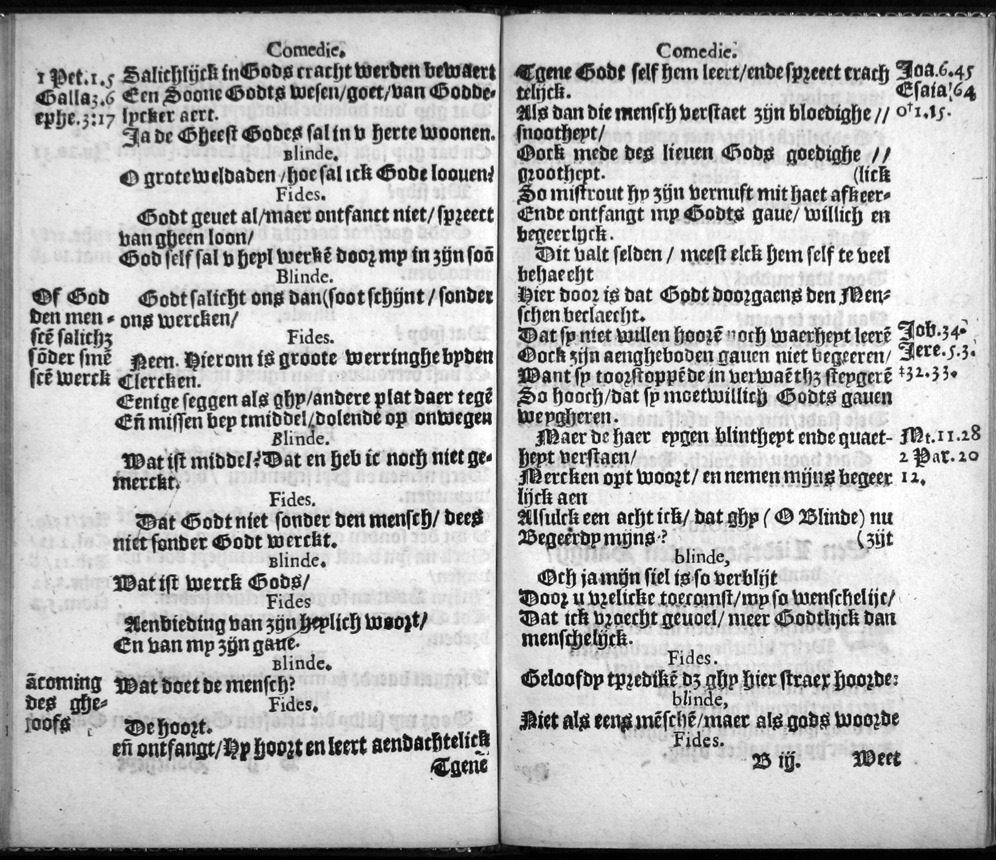 Comedie.
1 Pet.1.5 Salichlijck in Gods cracht werden bewaert
Galla3.6 Een Soone Godts wesen/goet/van Godde-
ephe.3:17 lycker aert.
Ja de Gheest Godes sal in v herte woonen.
Blinde.
O grote weldaden/hoe sal ick Gode loouen?
Fides.
Godt geuet al/maer ontfanct niet/spreect
van gheen loon/
God self sal v heyl werkē door my in zijn soō
Blinde.
Of God Godt salicht ons dan(soot schijnt/sonder
den men- ons wercken/
scē salichȝ Fides.
sōder smē Neen. Hierom is groote werringhe byden
scē werck Clercken.
Eenige seggen als ghy/andere plat daer tegē
Eñ missen bey tmiddel/dolende op onwegen
Blinde.
Wat ist middel? Dat en heb ic noch niet ge-
merckt.
Fides.
Dat Godt niet sonder den mensch/dees
niet sonder Godt werckt.
Blinde.
Wat ist werck Gods/
Fides
Aenbieding van zijn heylich woort/
En van my zijn gaue.
Blinde.
ācoming Wat doet de mensch?
des ghe- Fides.
loofs De hoort.
eñ ontfangt/Hy hoort en leert aendachtelick
Tgene
Comedie.
Tgene Godt self hem leert/ende spreect crach Joa.6.45
telijck. Esaia.64
Als dan die mensch verstaet zijn bloedighe // o†1.15.
snootheyt/
Oock mede des lieuen Gods goedighe //
grootheyt. (lick
So mistrout hy zijn vernuft mit haet afkeer-
Ende ontfangt my Godts gaue/willich en
begeerlyck.
Dit valt selden/meest elck hem self te veel
behaecht
Hier door is dat Godt doorgaens den Men-
schen beclaecht.
Dat sy niet willen hoorē noch waerheyt leerē Job.34.
Oock zijn aengheboden gauen niet begeeren/ Jere.5.3.
Want sy toorstoppēde in verwaēthȝ steygerē ‡32.33.
So hooch/dat sy moetwillich Godts gauen
weygheren.
Maer de haer eygen blintheyt ende quaet- Mt.11.28
heyt verstaen/ 2 Par.20
Mercken opt woort/en nemen mijns begeer 12.
lijck aen
Alsulck een acht ick/dat ghy (O Blinde) nu
Begeerdy mijns? (zijt
blinde,
Och ja mijn siel is so verblijt
Door u vrelicke toecomst/my so wenschelijc/
Dat ick vroecht geuoel/meer Godtlijck dan
menschelijck.
Fides.
Geloofdy tpredikē dȝ ghy hier straex hoorde?
blinde,
Niet als eens mēschē/maer als gods woorde
Fides.
B iij. Weet